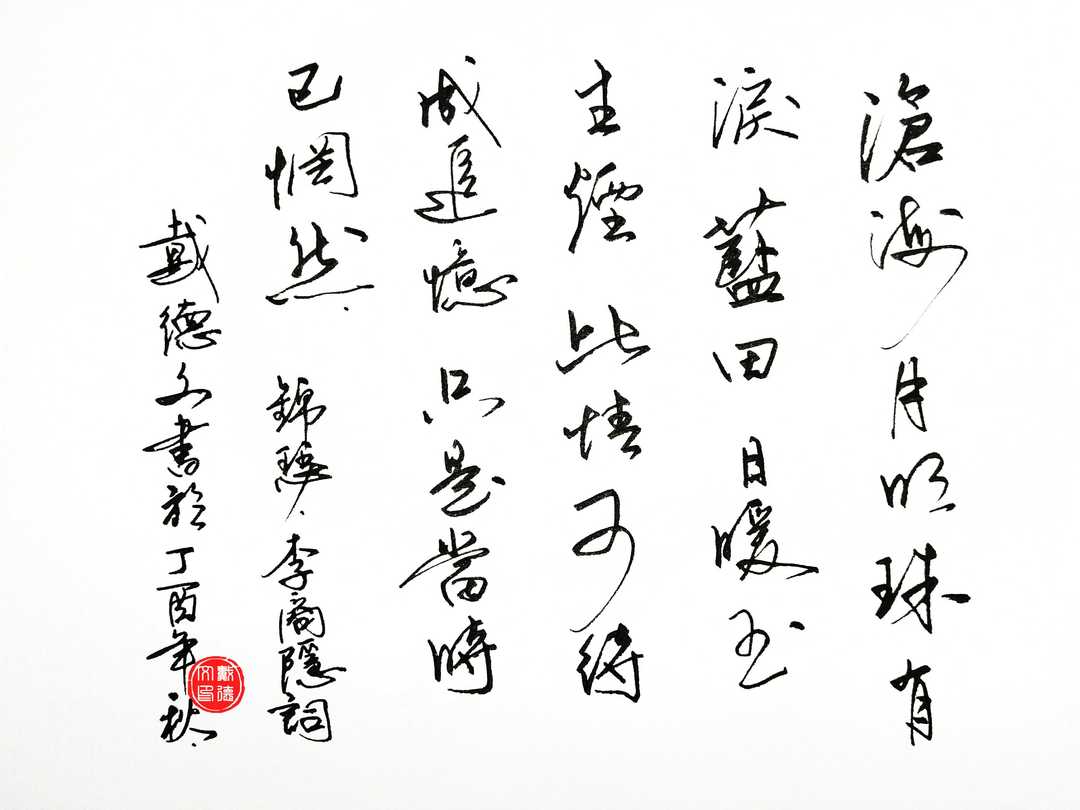 滄海月明珠有
淚藍田日暖玉
生煙此情可待
成追憶只是當時
已惘然 錦瑟 李商隱詞
戴德文書於丁酉年秋
戴德文印